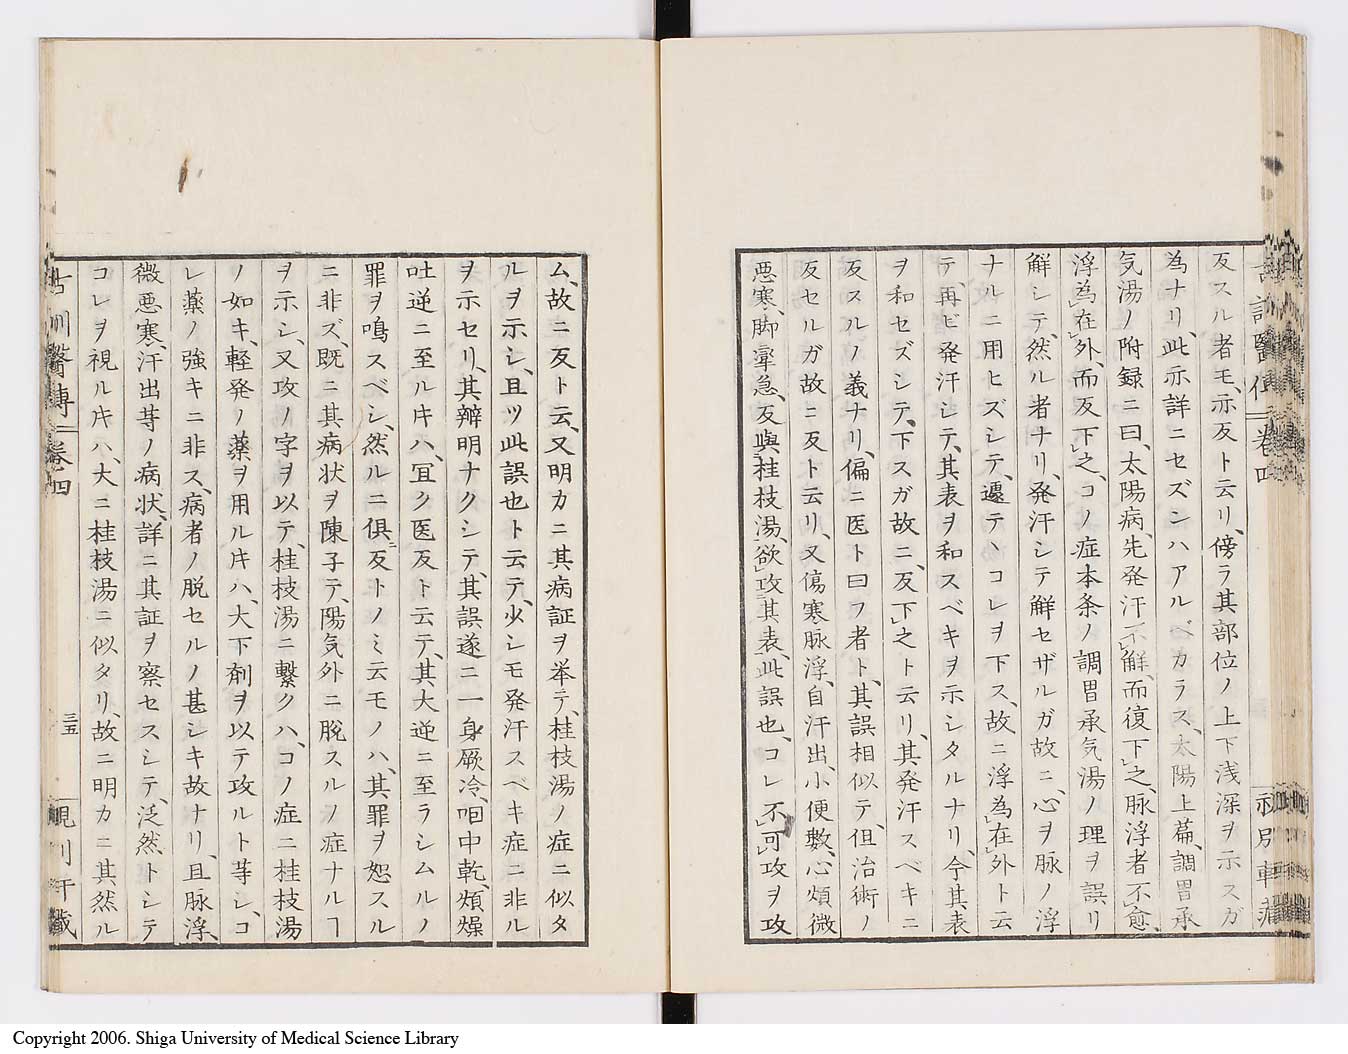 反スル者モ、亦反ト云リ、傍ラ其部位ノ上下浅深ヲ示スガ
為ナリ、此亦詳ニセズンハアルベカラス、太陽上篇、調胃承
気湯ノ附録ニ曰、太陽病、先発汗、不」解、而復下」之、脉浮者不」愈、
浮為」在」外、而反下」之、コノ症本条ノ調胃承気湯ノ理ヲ誤リ
解シテ、然ル者ナリ、発汗シテ解セザルガ故ニ、心ヲ脉ノ浮
ナルニ用ヒズシテ、遽テヽコレヲ下ス、故ニ浮為」在」外ト云
テ、再ビ発汗シテ、其表ヲ和スベキヲ示シタルナリ、今其表
ヲ和セズシテ、下スガ故ニ、反下」之ト云リ、其発汗スベキニ
反スルノ義ナリ、偏ニ医ト曰フ者ト、其誤相似テ、但治術ノ
反セルガ故ニ反ト云リ、又傷寒脉浮、自汗出、小便數、心煩微
悪寒、脚攣急、反與桂枝湯、欲」攻其表、此誤也、コレ不」可」攻ヲ攻
ム、故ニ反ト云、又明カニ其病証ヲ挙テ、桂枝湯ノ症ニ似タ
ルヲ示シ、且ツ此誤也ト云テ、少シモ発汗スベキ症ニ非ル
ヲ示セリ、其辨明ナクシテ、其誤遂ニ一身厥冷、咽中乾、煩燥
吐逆ニ至ル片ハ、冝ク医反ト云テ、其大逆ニ至ラシムルノ
罪ヲ鳴スベシ、然ルニ俱ニ反トノミ云モノハ、其罪ヲ恕スル
ニ非ズ、既ニ其病状ヲ陳子テ、陽気外ニ脱スルノ症ナルヿ
ヲ示シ、又攻ノ字ヲ以テ、桂枝湯ニ繋クハ、コノ症ニ桂枝湯
ノ如キ、軽発ノ薬ヲ用ル片ハ、大下剤ヲ以テ攻ルト等シ、コ
レ薬ノ強キニ非ス、病者ノ脱セルノ甚シキ故ナリ、且脉浮、
微悪寒、汗出等ノ病状、詳ニ其証ヲ察セスシテ、泛然トシテ
コレヲ視ル片ハ、大ニ桂枝湯ニ似タリ、故ニ明カニ其然ル
古訓醫傳 卷四
三五
Copyright 2006. Shiga University of Medical Science Library